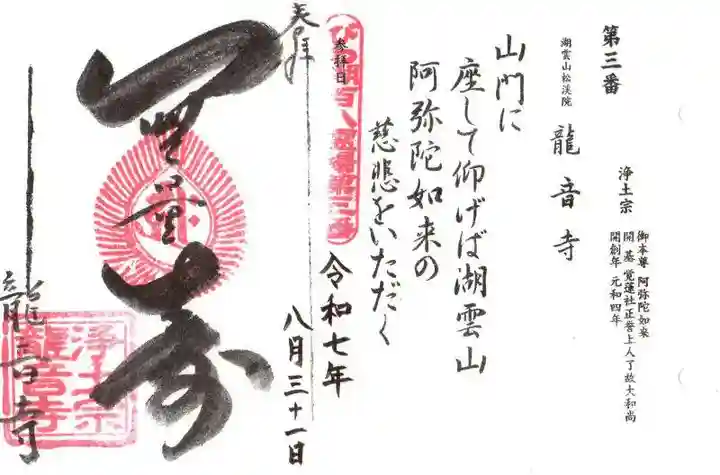 第三番
湖雲山松渓院
龍音寺
浄土宗
御本尊 阿弥陀如来
開基 覚蓮社正誉上人了故大和尚
開創年 元和四年
山門に
座して仰げば湖雲山
阿弥陀如来の
慈悲をいただく
参拝日
びわ湖百八霊場第三番
令和七年
八月三十一日
奉拝
無量寿
龍音寺
浄土宗
龍音寺